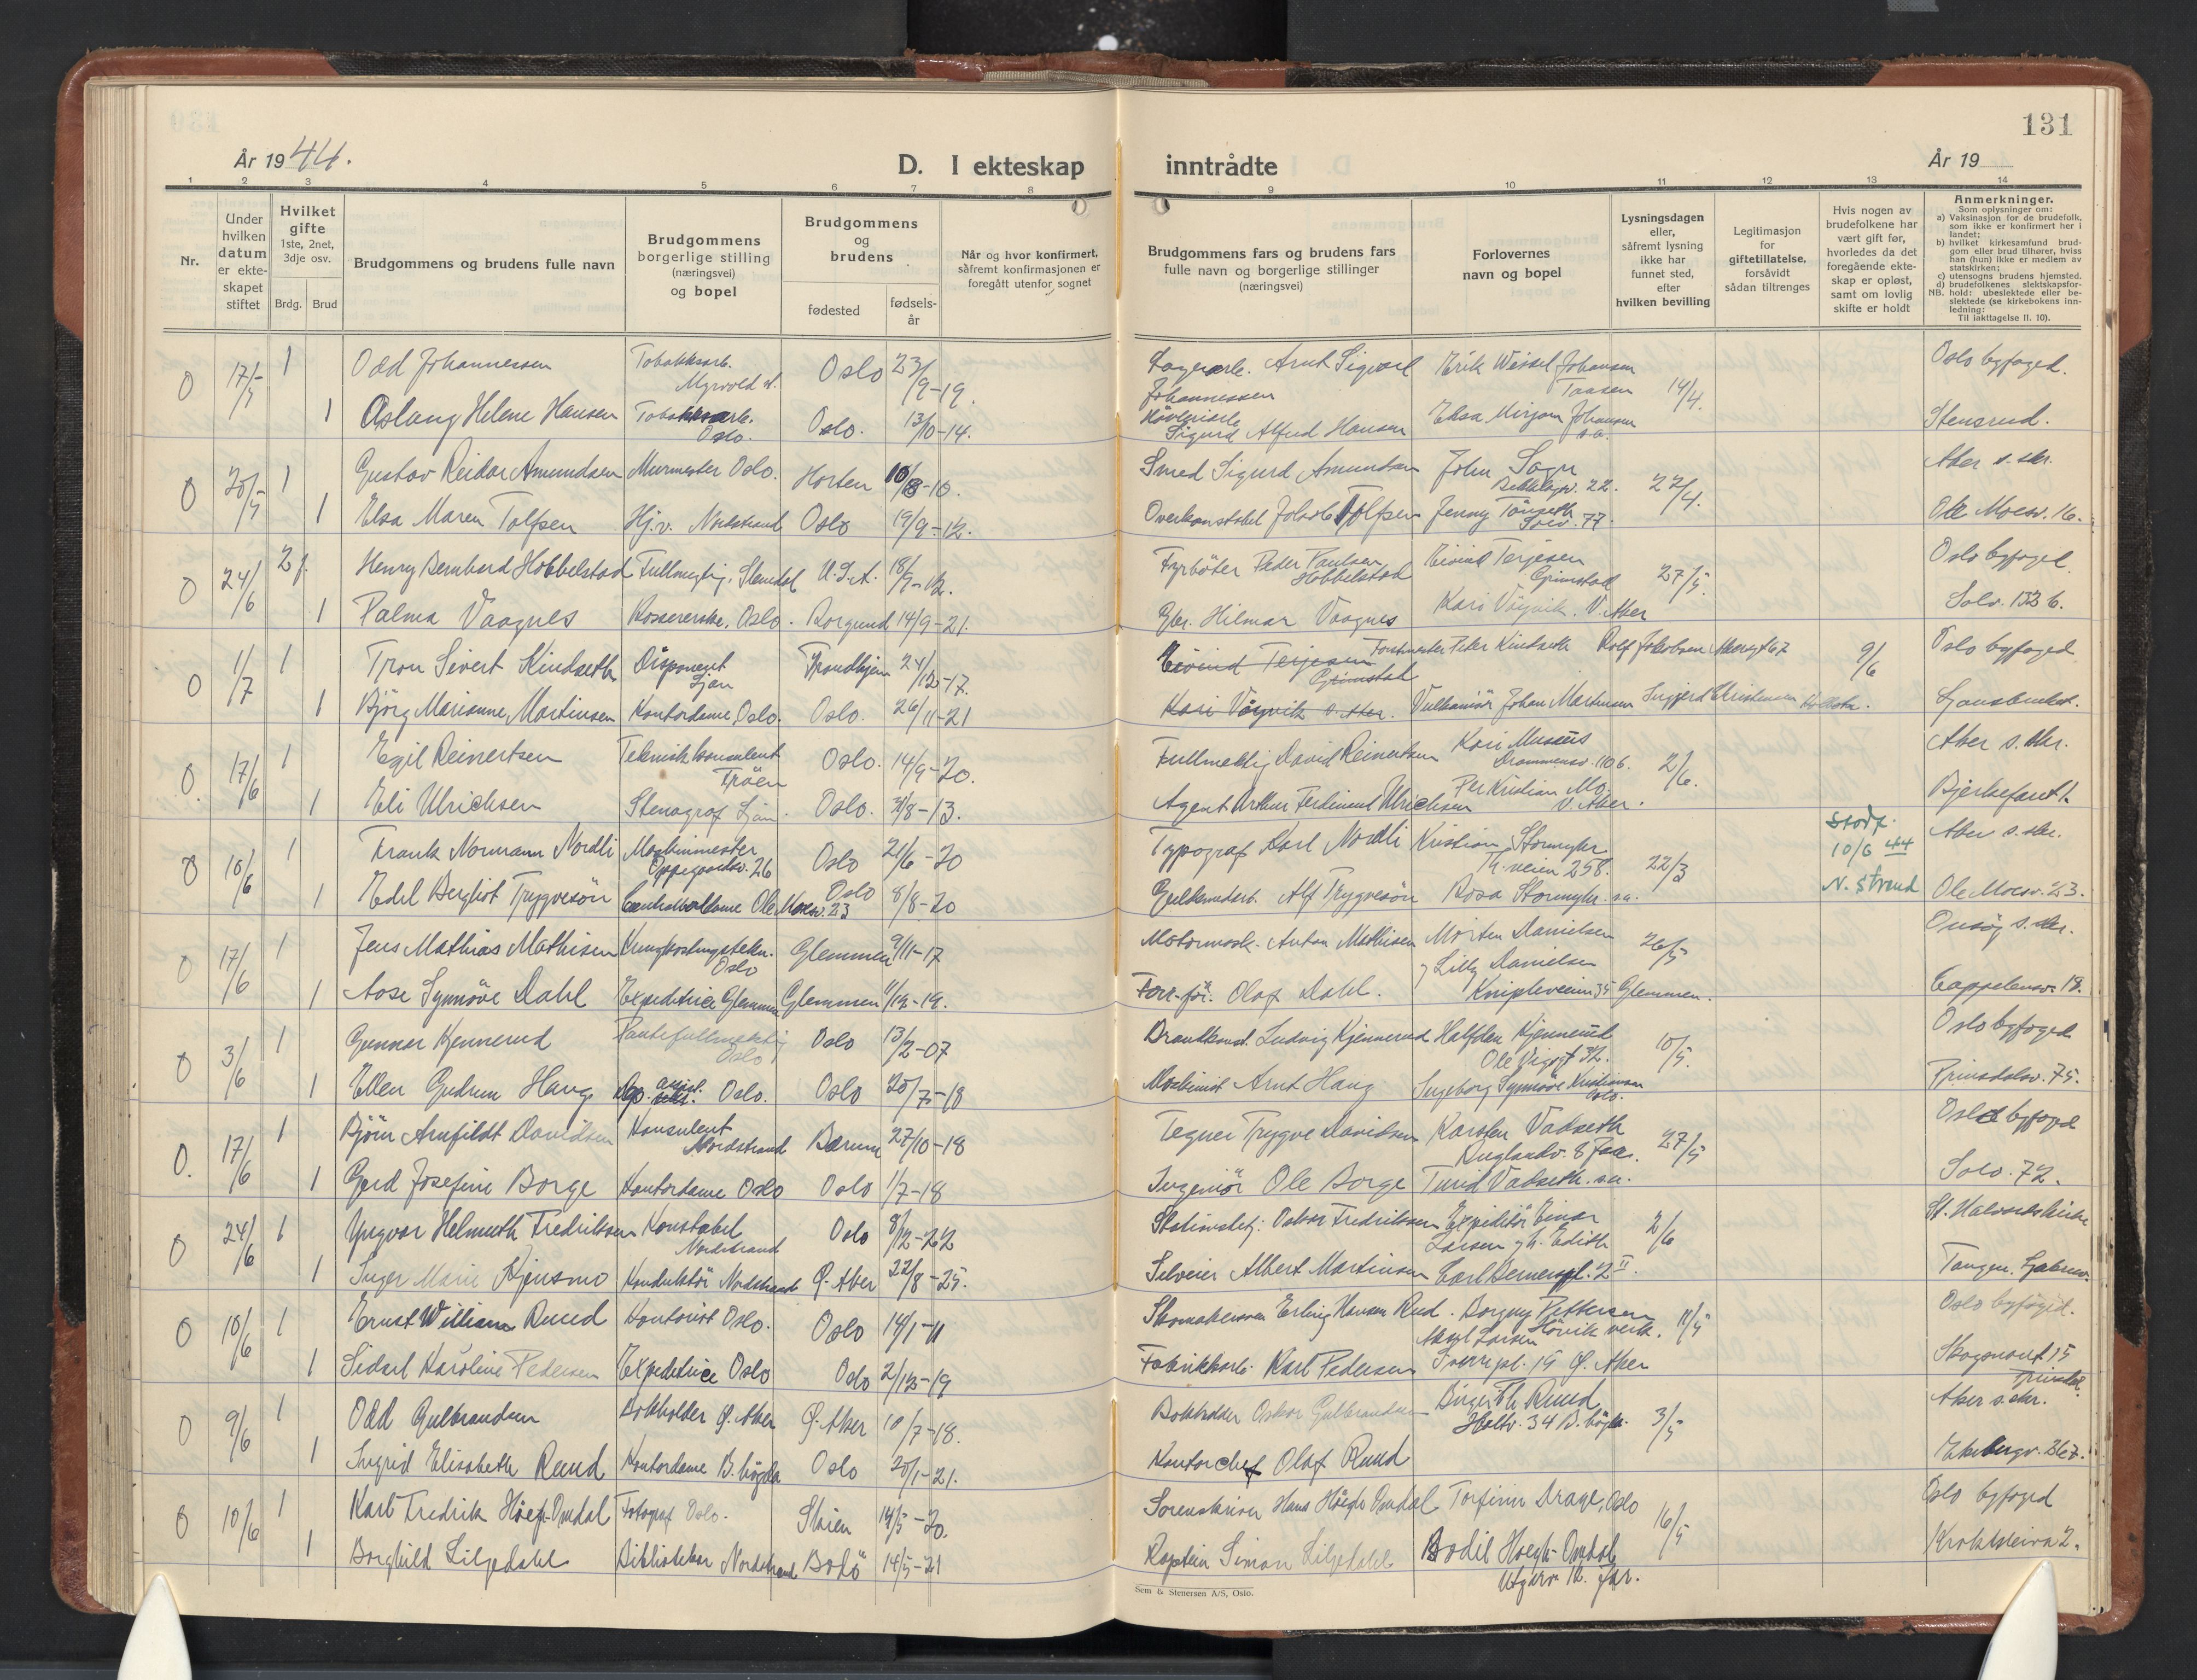 131
År 1944.
D. I ekteskap inntrådte
År 19
1 2 3 4 5 6 7 8 9 10 11 12 13 14
Nr.
Under hvilken datum er ekteskapet stiftet
Hvilket gifte 1ste, 2net, 3dje osv.
Brdg. Brud
Brudgommens og brudens fulle navn
Brudgommens borgerlige stilling (næringsvei) og bopel
Brudgommens og brudens
fødested
fødselsår
Når og hvor konfirmert, såfremt konfirmasjonen er foregått utenfor sognet
Brudgommens fars og brudens fars fulle navn og borgerlige stillinger (næringsvei)
Forlovernes navn og bopel
Lysningsdagen eller, såfremt lysning ikke har funnet sted, efter hvilken bevilling
Legitimasjon for giftetillatelse, forsåvidt sådan tiltrenges
Hvis nogen av brudefolkene har vært gift før, hvorledes da det foregående ekteskap er opløst, samt om lovlig skifte er holdt
Anmerkninger.
Som oplysninger om:
a) Vaksinasjon for de brudefolk, som ikke er konfirmert her i landet;
b) hvilket kirkesamfund brudgom eller brud tilhører, hviss han (hun) ikke er medlem av statskirken;
c) utensogns brudens hjemsted.
d) brudefolkenes slektskapsforhold: ubeslektede eller beslektede (se kirkebokens innledning:
NB. Til iakttagelse II. 10).
O 17/5 1 Odd Johannessen Tobakksarb. Myrvold st. Oslo 23/9-19. Lagerarb. Arnt Sigvart Johannessen Erik Wessel Johansen Taasen 14/4. Oslo byfoged.
1 Aslaug Helene Hansen Tobakksarb. Oslo. Oslo. 13/10-14. Sigurd Alfred Hansen Elsa Mirjam Johansen s.a. Stensrud.
O 20/5 1 Gustav Reidar Amundsen Murmester Oslo. Horten 10/8-10. Smed Sigurd Amundsen John Sagn 22. 22/4. Aker s. skr.
1 Elsa Maren Tolfsen Hj.v. Nordstrand Oslo 19/9-12. Overkonstabel Tolfsen Jenny 77. Ole Moesv. 16.
O 24/6 2 f. Henry Bernhard Hobbelstad Fullmegtig, U.S.A. 18/9-12. Fyrböter Peder Paulsen Hobbelstad Eivind Terjesen Grimstad 27/5. Oslo byfoged.
1 Palma Vaagnes Oslo. Borgund 14/9-21. Gbr. Hilmar Vaagnes Kari Vågvik. V. Aker Solv. 132 b.
O 1/7 1 Tron Sivert Kindseth Disponent Ljan Trondhjem 24/12-17. Eivind Terjesen Grimstad Forstmester Peter Kindseth Rolf Jakobsen Akersgt 67 9/6 Oslo byfoged
1 Björg Marianne Martinsen Kontordame, Oslo. Oslo. 26/11-21 Kari Vågvik V. Aker. Vulkanisör Johan Martinsen Ingjerd Christensen Ljansbruket.
O. 17/6 1 Egil Reinertsen Teknisk konsulent Oslo. 14/9-20. Fullmektig David Reinertsen Kari Musæus Drammensv. 106. 2/6. Aker s. skr.
1 Eli Ulrichsen Stenograf Ljan. Oslo. 31/8-13. Agent Arthur Ferdinand Ulrichsen Per Kristian Mo V. Aker.
O 10/6 1 Frank Normann Nordli Maskinmester Oppegaardsv. 26 Oslo 21/6-20 Typograf Karl Nordli Kristian Stormyhr Th. veien 258. 22/3 Stadf. 10/6 44 N. Strand Aker s. skr.
1 Edel Bergliot Trygvesön Centralborddame Ole Moesv. 23 Oslo 8/8-20 Gullsmedarb. Alf Trygvesön Rosa Stormyhr. s.a. Ole Moesv. 23.
O 17/6 1 Jens Mathias Mathisen Oslo Glemmen 9/11-17 Motormask. Anton Mathisen Morten Danielsen 26/5 Onsöy s. skr.
1 Aase Synnöve Dahl Expeditrice Glemmen Glemmen 11/12-19. Forr.för. Olaf Dahl. og Lilly Danielsen Knipleveien 35 Glemmen. Cappelensv. 18.
O 3/6 1 Gunnar Kjennerud Pantefullmektig Oslo Oslo 13/2-07 Brandkonst. Ludvig Kjennerud Halfdan Kjennerud Ole Vigsgt 32. 10/5. Oslo byfoged
1 Ellen Gudrun Haug Ap. assist. Oslo. Oslo 20/7-18 Maskinist Arnt Haug Ingeborg Synnöve Kristiansen Oslo. Prinsdalsv. 75.
O. 17/6 1 Björn Arnfildt Davidsen Konsulent Nordstrand Bærum 27/10-18 Tegner Trygve Davidsen Karsten Vadseth 27/5 Oslo byfoged
1 Gerd Josefine Borge Kontordame Oslo Oslo 1/7-18 Ingeniör Ole Borge Turid Vadseth. s.a. Solv. 72.
O 24/6 1 Yngvar Helmuth Fredriksen Konstabel Nordstrand Oslo 8/12-22 Stationsbetj. Oskar Fredriksen Expeditör Einar Larsen og h. Edith 2/6 St. Halvards kirke
1 Inger Marie Kjensmo Konduktör Nordstrand Ö. Aker 22/8-25. Albert Martinsen Carl Bernerspl. 2 II. Tangen.
O 10/6 1 Ernst William Ruud Kontorist Oslo. Oslo 14/1-11 Skomakersven Erling Hansen Rud. Borgny Pettersen Hövik verk. 11/5 Oslo byfoged.
1 Sidsel Karoline Pedersen Expeditrice Oslo Oslo 2/12-19 Fabrikkarb. Karl Pedersen Aksel Larsen Sverrepl. 19 Ö. Aker Skogsnaut 15 Prinsdal.
O 9/6 1 Odd Gulbrandsen Bokholder Ö. Aker Ö. Aker 10/7-18. Bokholder Oskar Gulbrandsen Birger Th. Ruud Holtv. 34 B. högda. 3/5 Aker s. skr.
1 Ingrid Elisabeth Ruud Kontordame B. högda Oslo 20/1-21. Kontorchef Olaf Ruud Ekebergv. 367.
O 10/6 1 Karl Fredrik Höegh-Omdal Fotograf Oslo. Skien 14/5-20. Sorenskriver Hans Höegh Omdal Torfinn Drage, Oslo 16/5 Oslo byfoged
1 Borghild Liljedahl Bibliotekar Nordstrand Bodö 14/5-21 Kaptein Simon Liljedahl Bodil Hoegh-Omdal Krokkleiva 2.
Sem & Stenersen A/S, Oslo.